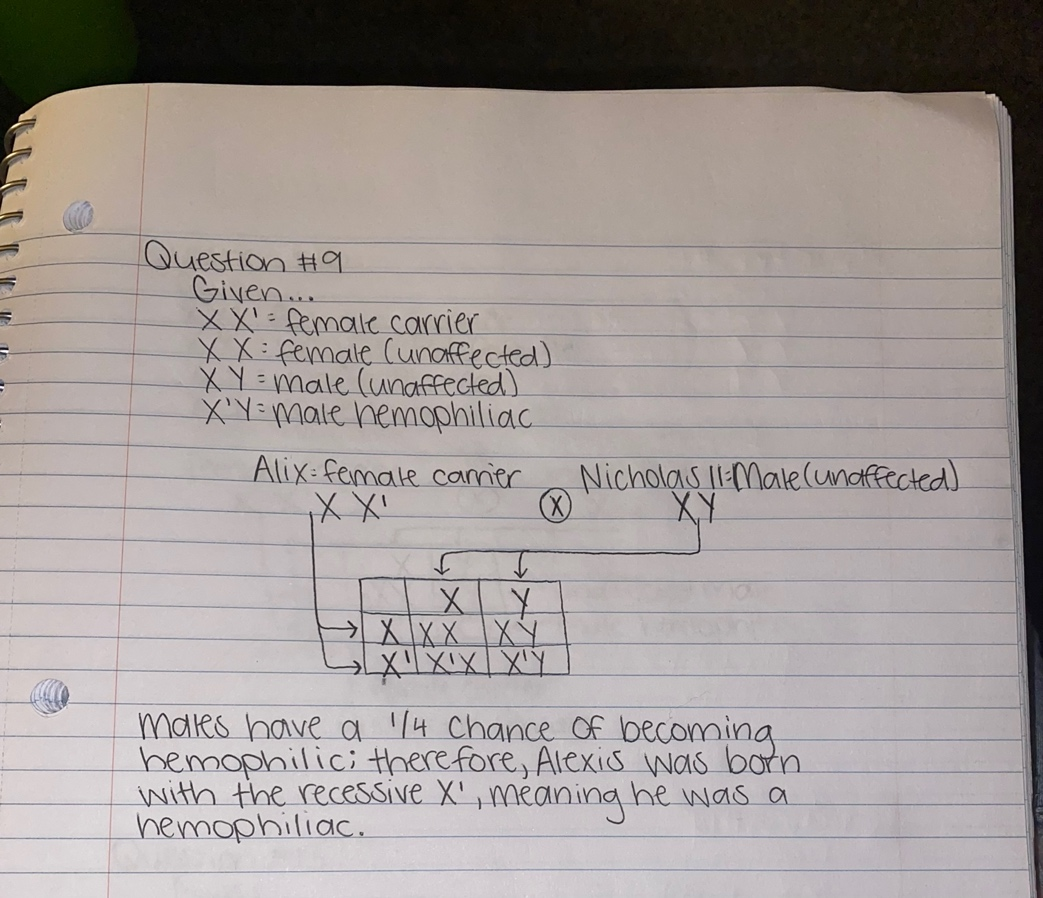 Question #9
Given...
X X' = female carrier
X X = female (unaffected)
X Y = male (unaffected)
X'Y = male hemophiliac
Alix = female carrier Nicholas II = Male (unaffected)
X X' X XY
X Y
X XX XY
X' X'X X'Y
Males have a 1/4 chance of becoming
hemophilic; therefore, Alexis was born
with the recessive X', meaning he was a
hemophiliac.